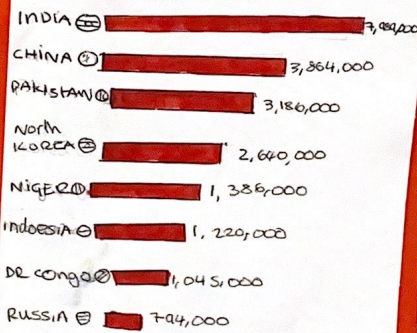 INDIA
CHINA 3,864,000
PAKISTAN 3,186,000
North
KOREA 2,640,000
NiGER 1,386,000
Indoesia 1,220,000
DR Congo 1,045,000
RUSSIA 794,000